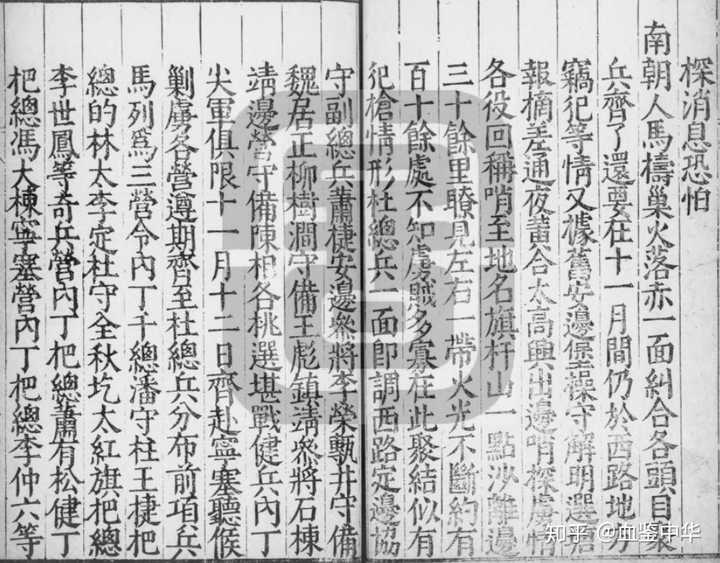 探消息恐怕
南朝人馬擣巢火落赤一面糾合各頭目聚
兵齊了還要在十一月間仍於西路地方
竊犯等情又據舊安邊堡操守解明選君
報摘差通夜黃合太高興出邊哨探虜情
各役回稱哨至地名旗杆山一點沙離邊
三十餘里瞭見左右一帶火光不斷約有
百十餘處不知虜賊多寡在此聚結似有
犯搶情形杜總兵一面即調西路定邊協
守副總兵蕭捷安邊叅將李榮 井守備
魏居正柳樹澗守備王彪鎮靖叅將石棟
靖邊營守備陳相各挑選堪戰健兵內丁
尖軍俱限十一月十二日齊赴寧塞聽候
剿虜各營遵期齊至杜總兵分布前項兵
馬列爲三營令內丁千總潘守柱王捷把
總的林太李定杜守全秋圪太紅旗把總
李世鳳等奇兵營內丁把總蕭有松健丁
把總馮大棟寧塞營內丁把總李仲六等
知乎 @血鉴中华